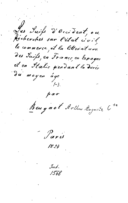 Les Juifs d'Occident, ou
Recherches sur l'état civil,
le commerce et la littérature
des Juifs, en France, en Espagne
et en Italie, pendant la durée
du moyen âge
par
Beugnot Arthur Auguste
Paris